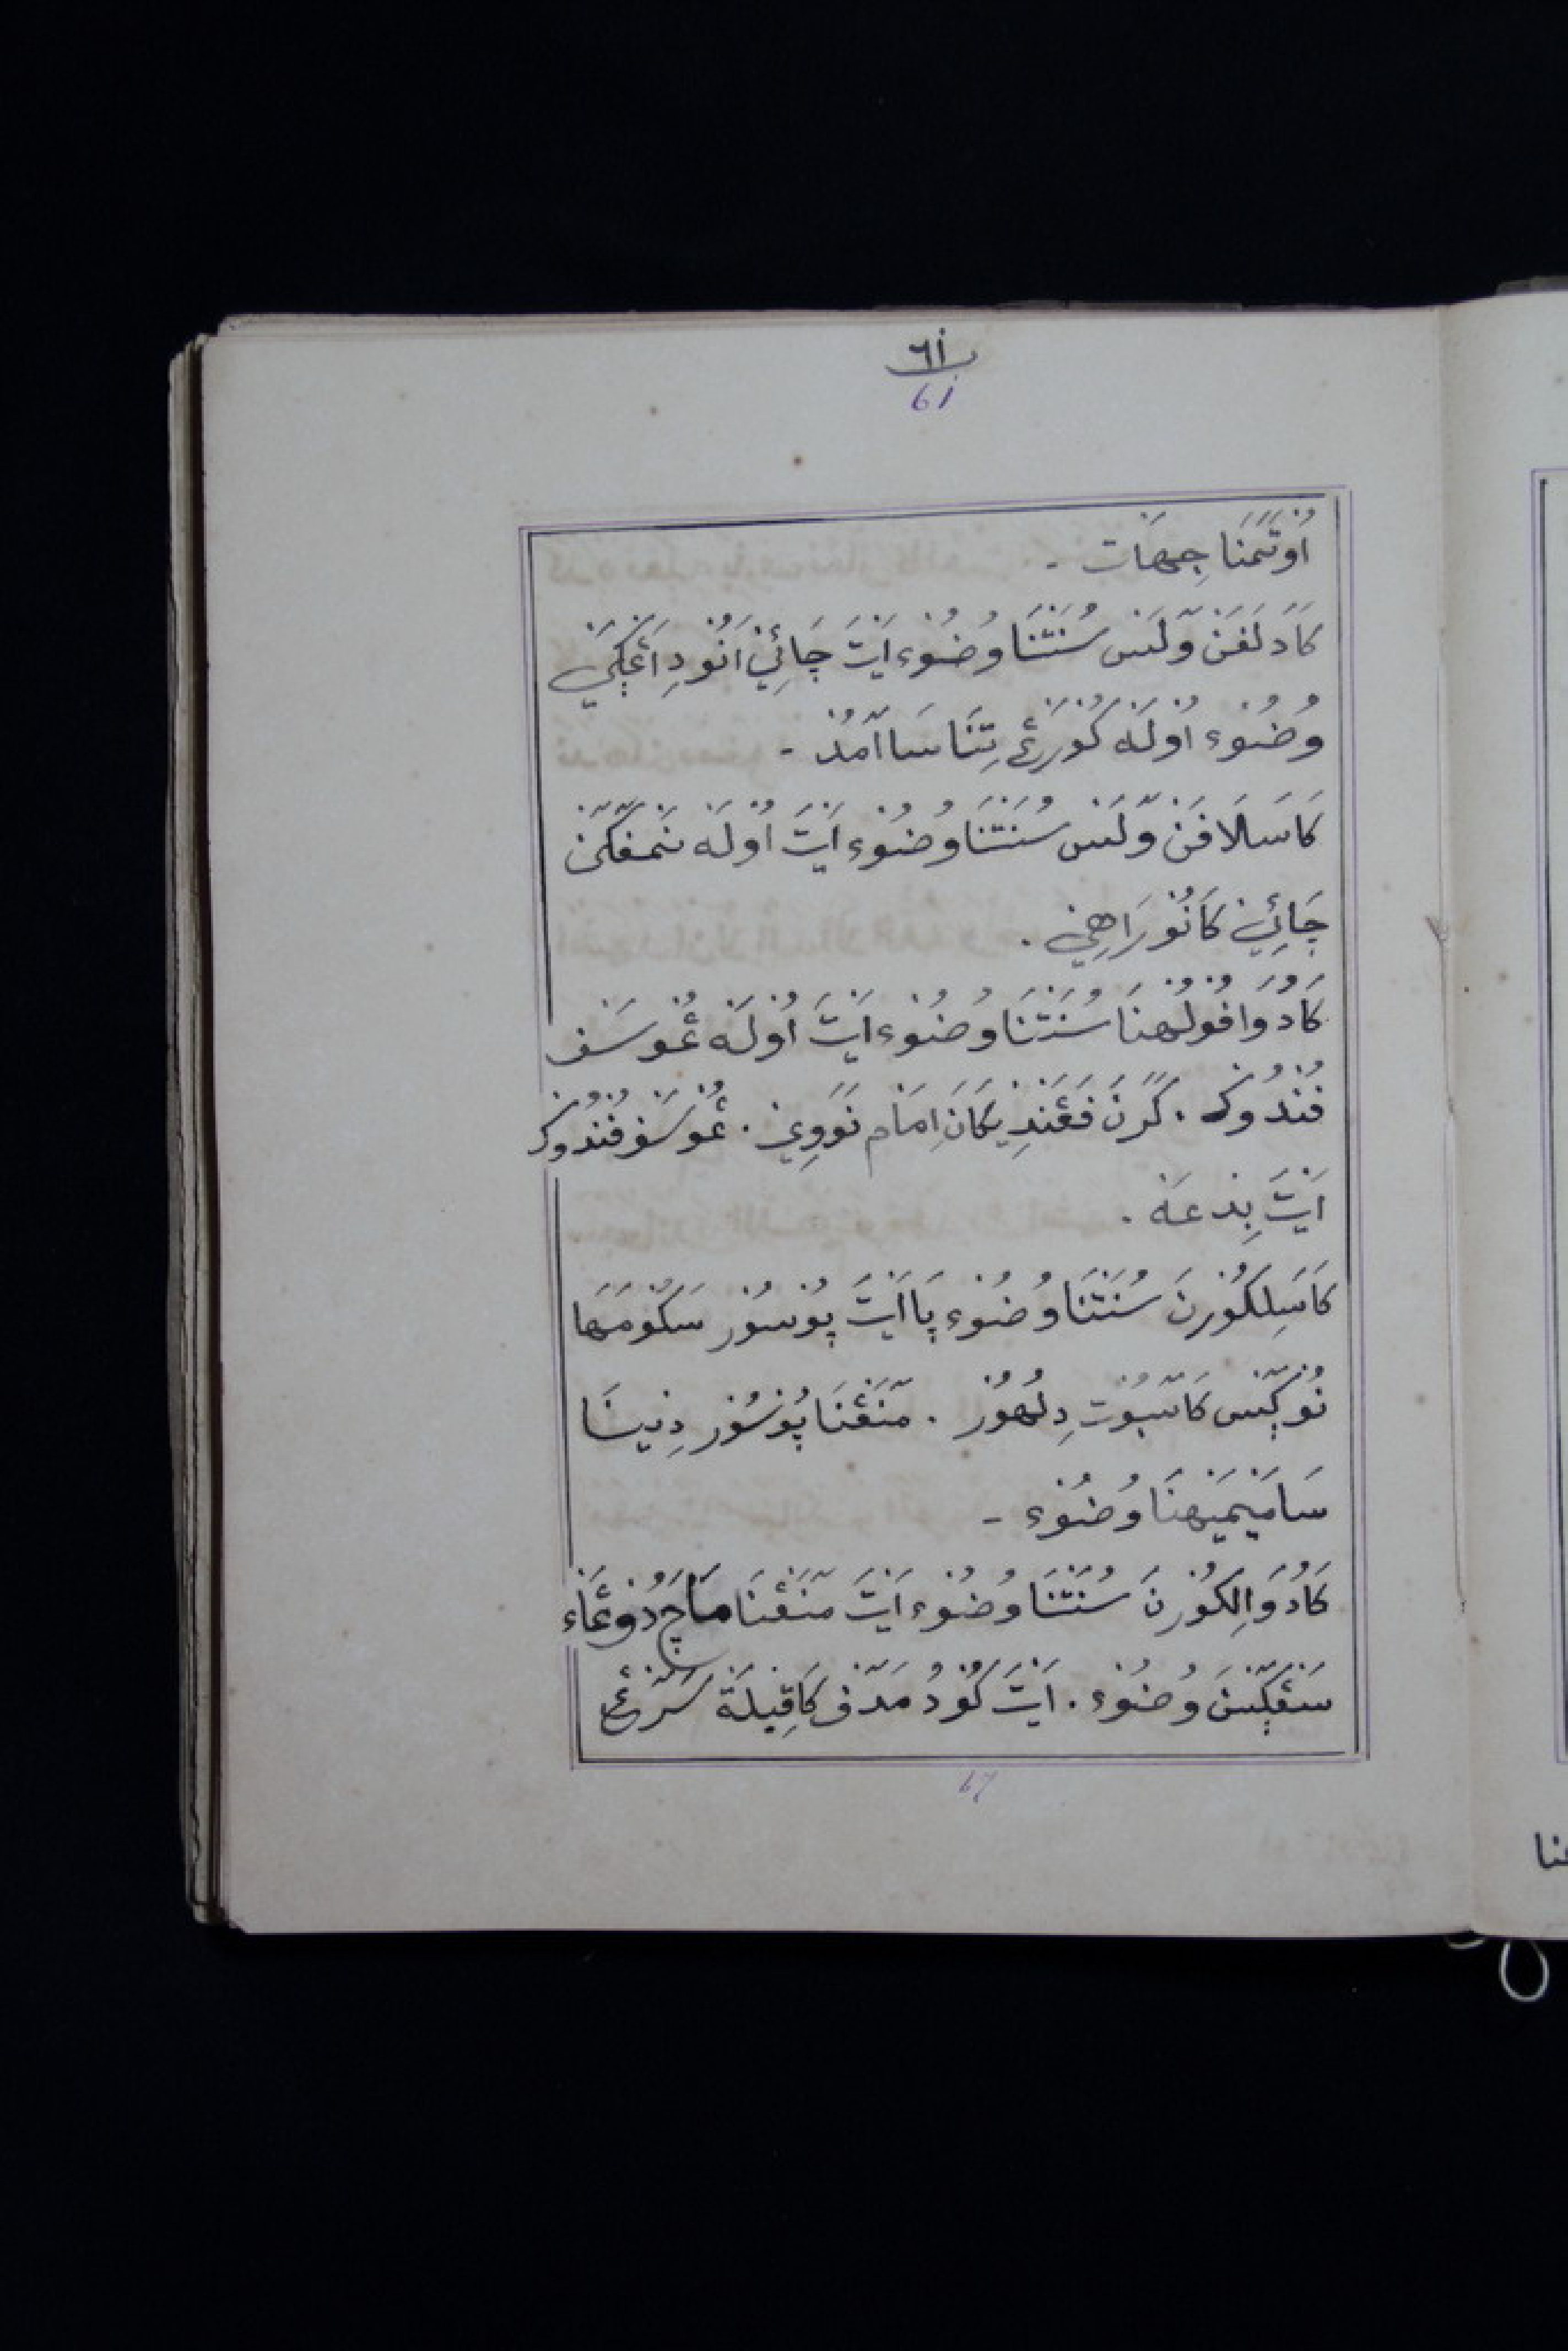 ٦١
61
اُوتَمَنَا جِمهَات -
كَادَلَفَن وّلَس سُنَتنَا وُضُوء اَيتَ چَائِيْ اَنُو دِاَڠكَيْ
وُضُوء اُولَه كُورَڠ تِنَا سَاامُد -
كَاسَالَافَن وّلَس سُنَتنَا وُضُوء اَيتَ اُولَه نَمفّكَن
چَائِيْ كَانُو رَاهِيْ .
كَادُوَا فُولُهنَا سُنَتنَا وُضُوء اَيتَ اُولَه ڠُوسَف
فُندُوك . كَرَنَ فَڠَندِيكَانَ اِمَام نَوَوِيْ . ڠُوسَف فُندُوك
اَيتَ بِدعَه .
كَاسَلِكُورنَ سُنَتنَا وُضُوء ڽَااَيتَ ڽُوسُور سَكُومَهَا
نُوكّس كَاسّبُوت دِلُهُور . مَنَڠنَا ڽُوسُور دِنِيسَا
سَامَيمَيهنَا وُضُوء -
كَادُوَالِكُورنَ سُنَتنَا وُضُوء اَيتَ مَنَڠنَا مَاچَ دُوعَاء
سَڠكّسنَ وُضُوء . اَيتَ كُودُ مَدّف كَاقِيبلَة سَرَڠ